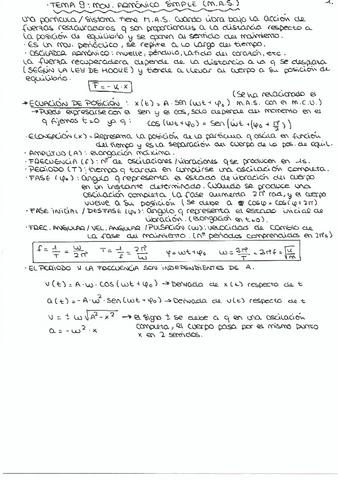 TEMA 9: MOV. ARMÓNICO SIMPLE (M.A.S.) 1.
Una partícula/Sistema tiene M.A.S. cuando vibra bajo la acción de
fuerzas restauradoras q son proporcionales a la distancia respecto a
la posición de equilibrio y se oponen al sentido del movimiento.
· Es un mov. periódico, se repite a lo largo del tiempo.
· OSCILADOR ARMÓNICO: muelle, péndulo, latido del corazón, etc.
La fuerza recuperadora depende de la distancia a la q se desgarda
(SEGÚN LA LEY DE HOOKE) y tiende a llevar al cuerpo a su posición de
equilibrio.
F = -k · x
(se ha relacionado el
→ ECUACIÓN DE POSICIÓN: x(t) = A · sen (ωt + φ₀) M.A.S. con el M.C.U.)
→ Puede expresarse con el sen y el cos, solo depende del momento en el
q fijemos t=0 ya q: cos (ωt + φ₀) = sen (ωt + (φ₀ + π/2))
· ELONGACIÓN (x) = Representa la posición de la partícula q oscila en función
del tiempo y es la separación del cuerpo de la pos. de equil.
· AMPLITUD (A): elongación máxima.
· FRECUENCIA (f): Nº de oscilaciones/vibraciones q se producen en 1s.
· PERIODO (T): tiempo q tarda en cumplirse una oscilación completa.
· FASE (φ): ángulo q representa el estado de vibración del cuerpo
en un instante determinado. Cuando se produce una
oscilación completa la fase aumenta 2π rad, y el cuerpo
vuelve a su posición (se debe a cosφ = cos(φ + 2π)
· FASE INICIAL / DESFASE (φ₀): ángulo q representa el estado inicial de
vibración. (elongación en t=0).
· FREC. ANGULAR / VEL. ANGULAR / PULSACIÓN (ω): velocidad de cambio de
la fase del movimiento. (Nº periodos comprendidos en 2πs)
f = 1/T = ω/2π T = 1/f = 2π/ω φ = ωt + φ₀ ω = 2π/T = 2πf = √k/m
· EL PERIODO Y LA FRECUENCIA SON INDEPENDIENTES DE A.
v(t) = A · ω · cos (ωt + φ₀) → Derivada de x(t) respecto de t
a(t) = -A · ω² · sen (ωt + φ₀) → Derivada de v(t) respecto de t
v = ± ω √A² - x² → El signo ± se debe a q en una oscilación
completa, el cuerpo pasa por el mismo punto
a = -ω² · x x en 2 sentidos.